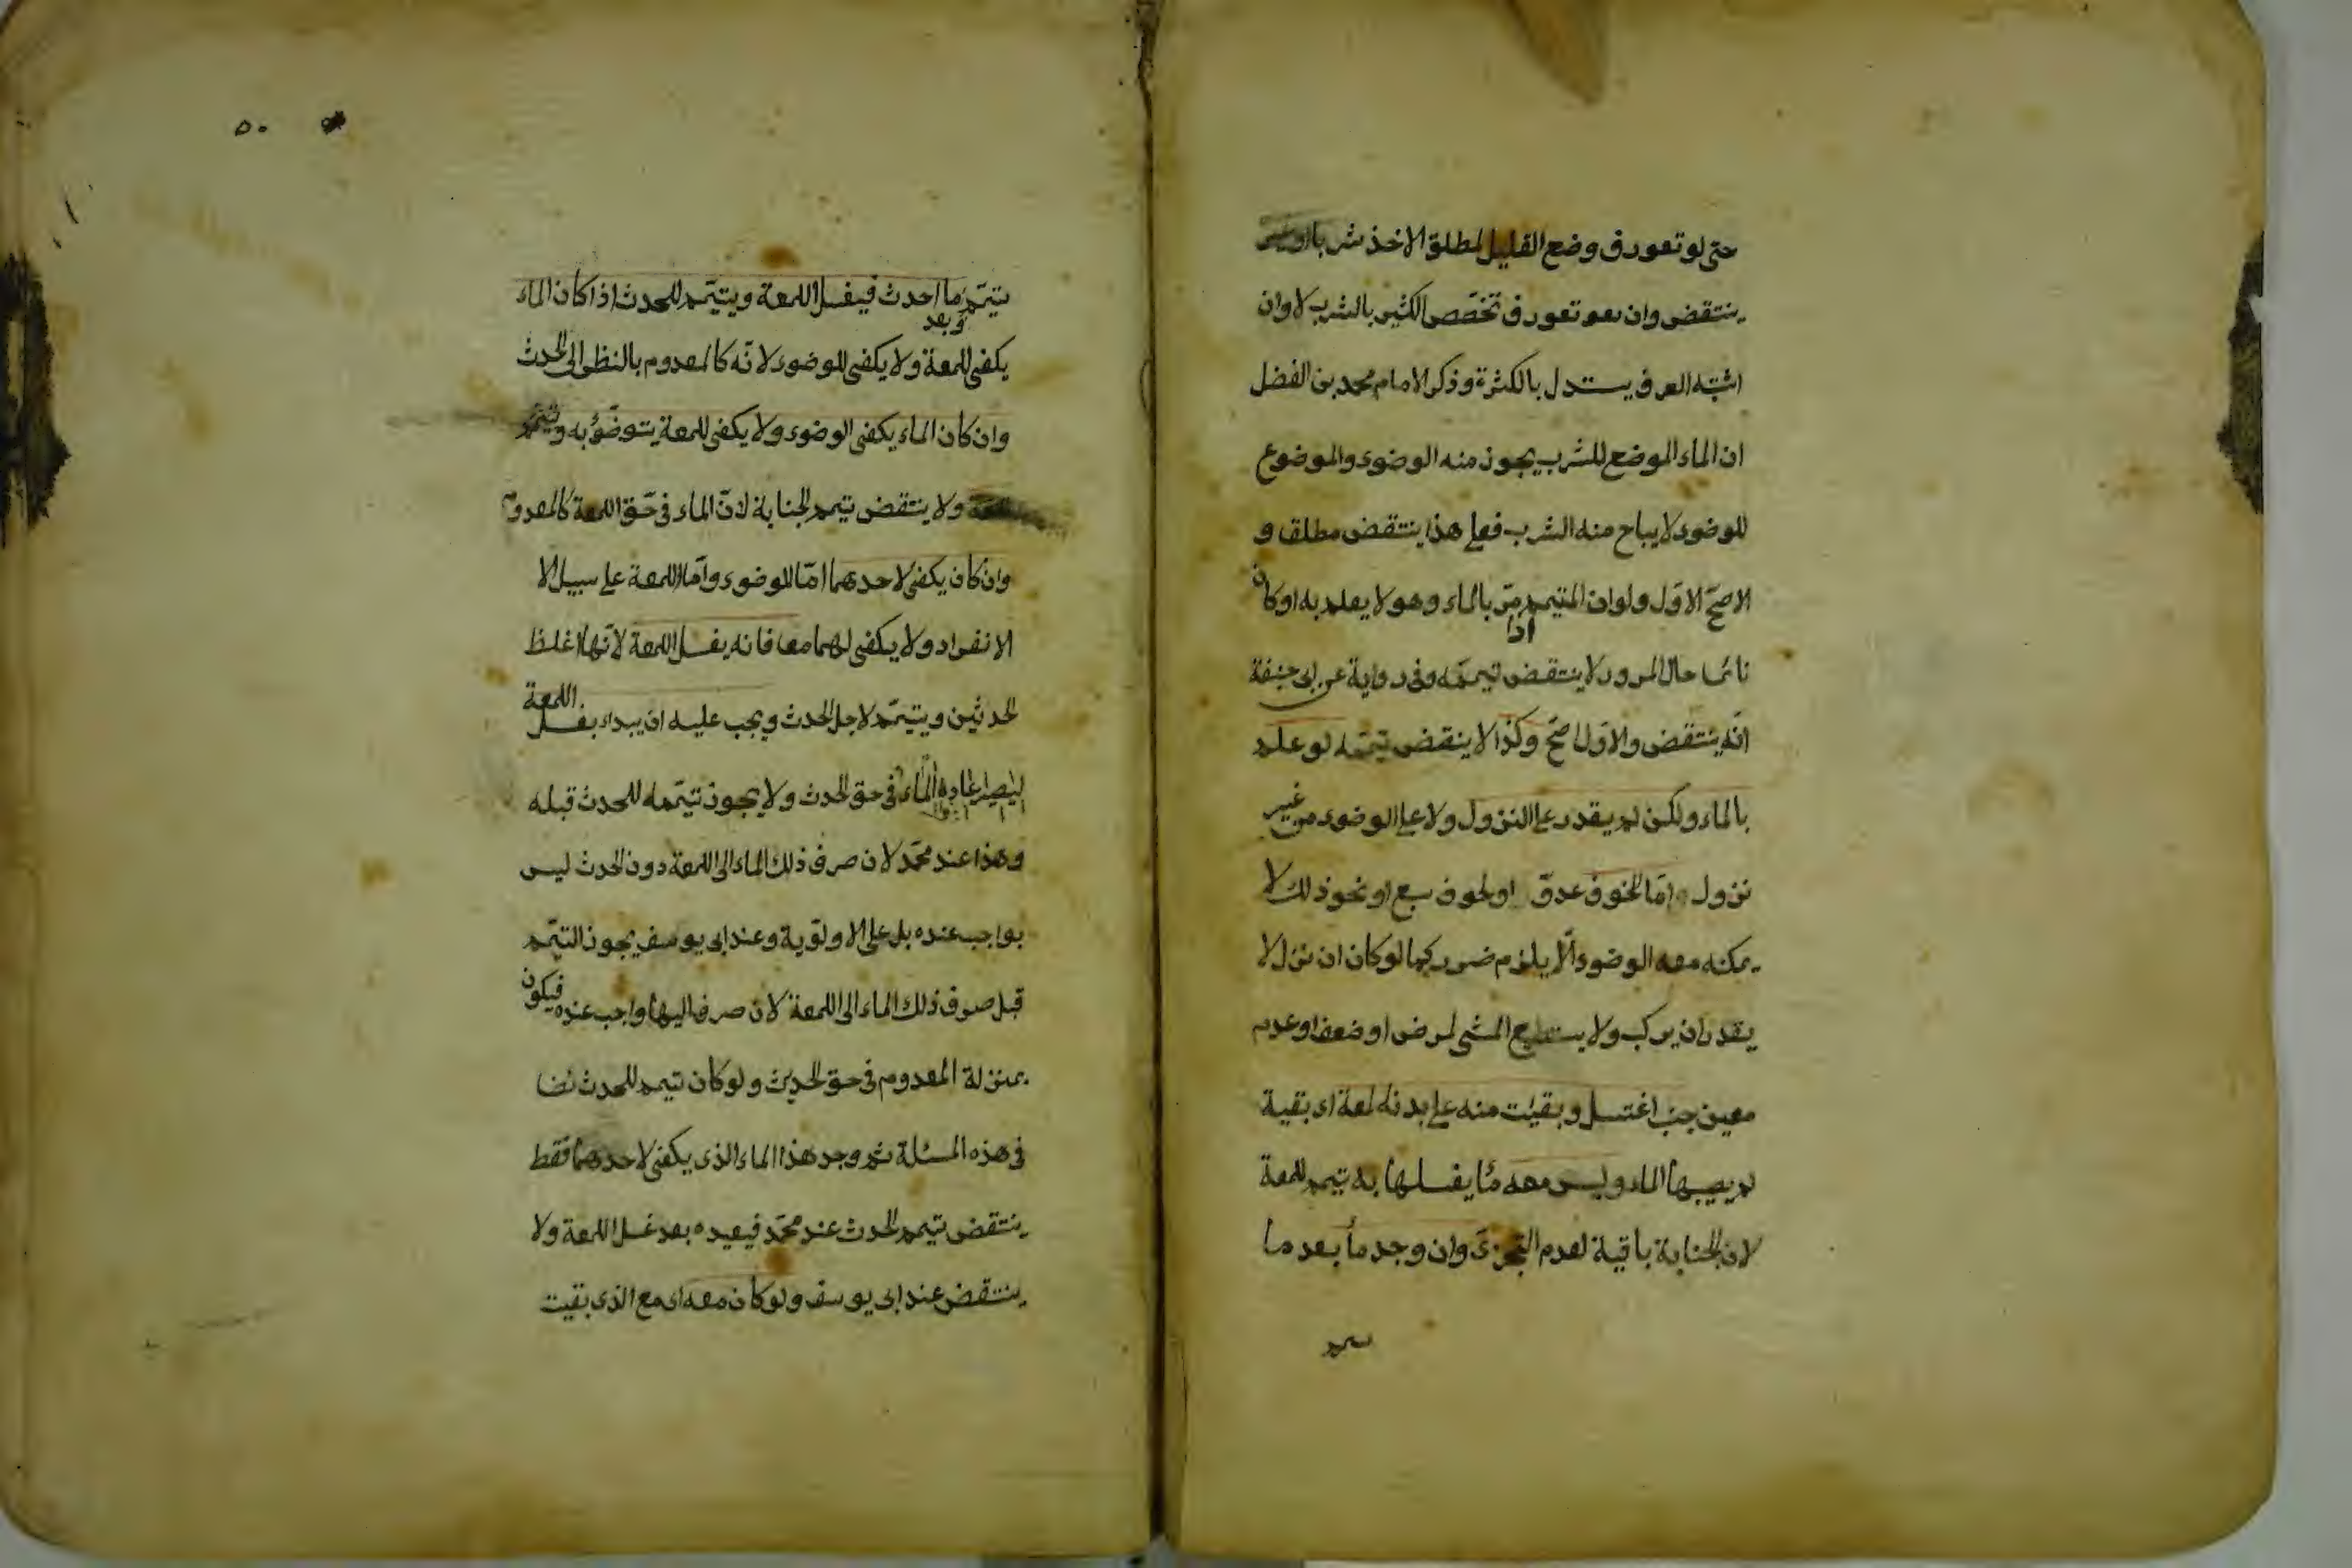 حتى لو تعورف وضع القليل لمطلق الاخذ شربا او غيره
ينتقض وان تعورف تخصّص الكثير بالشرب لا وان
اشتبه العرف يستدل بالكثرة وذكر الامام محمد بن الفضل
ان الماء الموضع للشرب يجوز منه الوضوء والموضوع
للوضوء لا يباح منه الشرب فعلى هذا ينتقض مطلقا و
الاصحّ الاوّل ولو ان المتيمم مرّ بالماء وهو لا يعلم به او كان
نائما حال المرور لا ينتقض تيممه وفى رواية عن ابى حنيفة
انّه ينتقض والاوّل اصحّ وكذا لا ينقض تيمّمه لو علم
بالماء ولكن لم يقدر على النزول ولا على الوضوء من غير
نزول وامّا لخوف عدوّ او لخوف سبع او نحو ذلك لا
يمكنه معه الوضوء الّا يلزم ضرر كما لو كان ان نزل لا
يقدر ان يركب ولا يستطيع المشى لمرض او ضعف او عدم
معين جنب اغتسل وبقيت منه على بدنه لمعة اى بقية
لم يصبها الماء وليس معه ما يغسلها به تيمم للمعة
لان الجنابة باقية لعدم التجزى وان وجد ماء بعد ما
تيمم
٥٠
يتيمّم ما احدث فيغسل اللمعة ويتيمّم للحدث اذا كان الماء
وبعد
يكفى للمعة ولا يكفى للوضوء لانّه كالمعدوم بالنظر الى الحدث
وان كان الماء يكفى الوضوء ولا يكفى للمعة يتوضّؤ به ويتيمّم
للمعة ولا ينتقض تيمم الجنابة لانّ الماء فى حّق اللمعة كالمعدوم
وان كان يكفى لاحدهما امّا للوضوء وامّا اللمعة على سبيل الا
الانفراد ولا يكفى لهما معا فانه يغسل اللمعة لانّها اغلظ
الحدثين ويتيمّم لاجل الحدث ويجب عليه ان يبداء بغسل اللمعة
ليصير عادم الماء فى حق الحدث ولا يجوز تيمّمه للحدث قبله
وهذا عند محمّد لان صرف ذلك الماء الى اللمعة دون الحدث ليس
بواجب عنده بل على الاولوية وعند ابى يوسف يجوز التيمّم
قبل صرف ذلك الماء الى اللمعة لان صرفه اليها واجب عنده فيكون
بمنزلة المعدوم فى حق الحدث ولو كان تيمم للحدث
فى هذه المسئلة ثم وجد هذا الماء الذى يكفى لاحدهما فقط
ينتقض تيمم الحدث عند محمّد فيعيده بعد غسل اللمعة ولا
ينتقض عند ابى يوسف ولو كان معه اى مع الذى بقيت